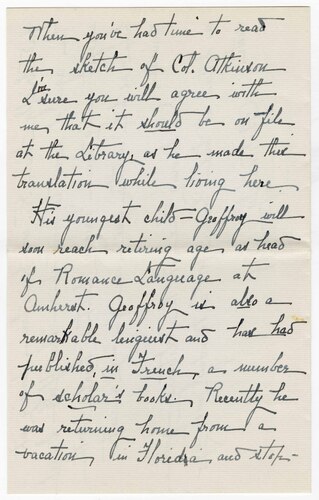 When you've had time to read
the sketch of Col. Atkinson
I'm sure you will agree with
me that it should be on file
at the Library, as he made this
translation while living here.
His youngest child - Geoffroy will
soon reach retiring age as head
of Romance Language at
Amherst. Geoffroy is also a
remarkable linguist and has had
published, in French, a number
of scholar's books. Recently he
was returning home from a
vacation in Floredia and stop-